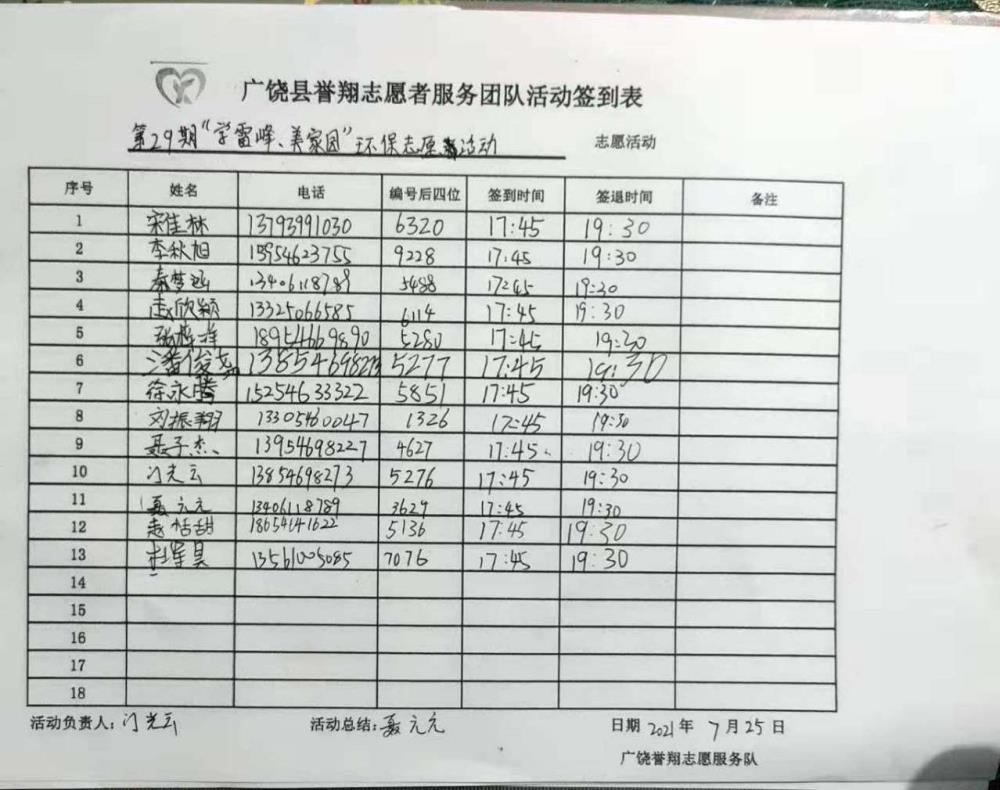 广饶县誉翔志愿者服务团队活动签到表
第29期"学雷峰、美家园"环保志愿活动 志愿活动
序号 姓名 电话 编号后四位 签到时间 签退时间 备注
1 宋佳林 13793991030 6320 17:45 19:30
2 李秋旭 15954623755 9228 17:45 19:30
3 秦梦涵 13406118789 5488 17:45 19:30
4 赵欣颖 13325066585 6114 17:45 19:30
5 18954669890 5280 17:45 19:30
6 潘俊尧 13854698273 5277 17:45 19:30
7 徐永腾 15254633322 5851 17:45 19:30
8 刘振翔 13305460047 1326 17:45 19:30
9 聂子杰 13954698227 4627 17:45 19:30
10 门光云 13854698273 5276 17:45 19:30
11 聂元元 13406118789 3629 17:45 19:30
12 赵恬甜 18654141622 5136 17:45 19:30
13 杜军昊 13561005085 7076 17:45 19:30
14
15
16
17
18
活动负责人：门光云 活动总结：聂元元 日期 2021年 7月25日
广饶誉翔志愿服务队